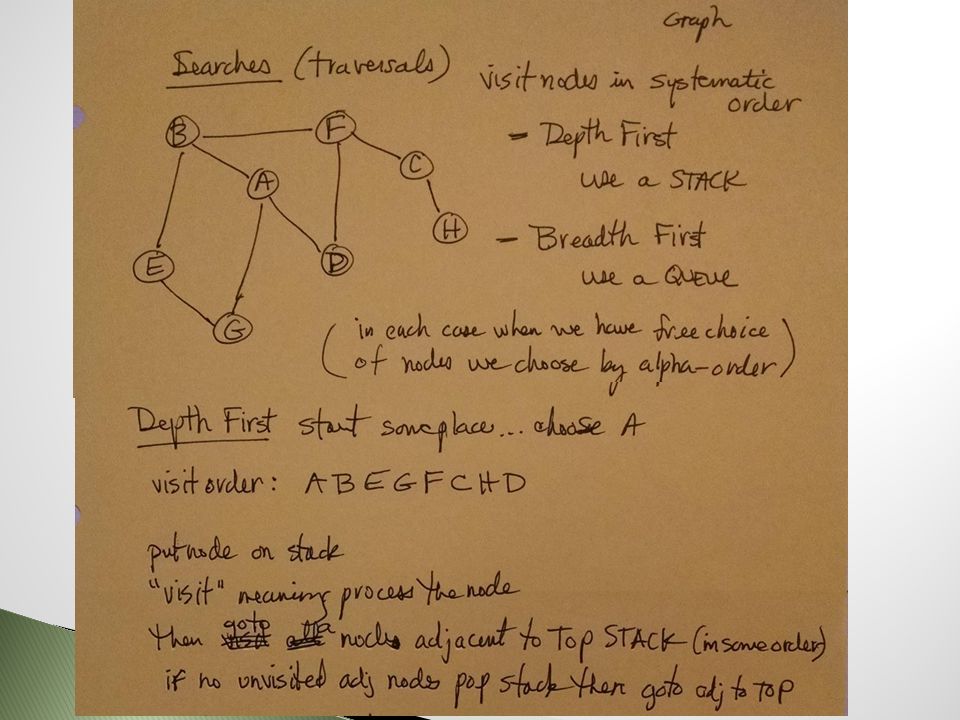 Graph
Searches (traversals)
visit nodes in systematic
order
- Depth First
use a STACK
- Breadth First
use a QUEUE
(in each case when we have free choice
of nodes we choose by alpha-order)
B
F
A
C
H
E
D
G
Depth First start someplace... choose A
visit order: A B E G F C H D
put node on stack
"visit" meaning process the node
then goto a node adjacent to TOP STACK (in some order)
if no unvisited adj nodes pop stack then goto adj to TOP